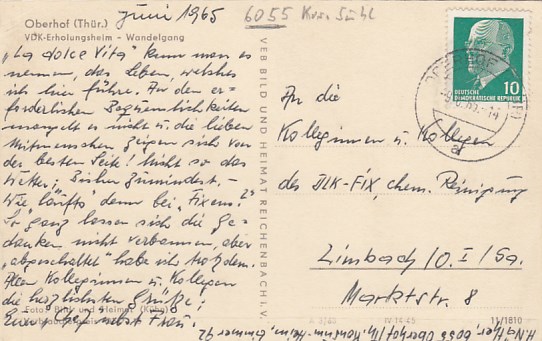 Juni 1965
6055 Krs. Suhl
Oberhof (Thür.)
VDK-Erholungsheim - Wandelgang
„La dolce Vita" kann man es
nennen, das Leben, welches
ich hier führe. An den er-
forderlichen Bequemlichkeiten
mangelt es nicht u. die lieben
Mitmenschen zeigen sich von
der besten Seite! Nicht so das
Wetter; Bisher zumindest. -
Wie läufts denn bei „Fixens?"
So ganz lassen sich die Ge-
danken nicht verbannen, aber
„abgeschaltet" habe ich trotzdem.
Allen Kolleginnen u. Kollegen
die herzlichsten Grüße!
nebst Frau.
Foto: Bild und Heimat (Kühn)
VEB BILD UND HEIMAT REICHENBACH I. V.
DEUTSCHE
DEMOKRATISCHE REPUBLIK
10
An die
Kolleginnen u. Kollegen
des DLK-FIX, chem. Reinigung
Limbach/O. I/Sa.
Marktstr. 8
11/1810
6055 Oberhof/Th.